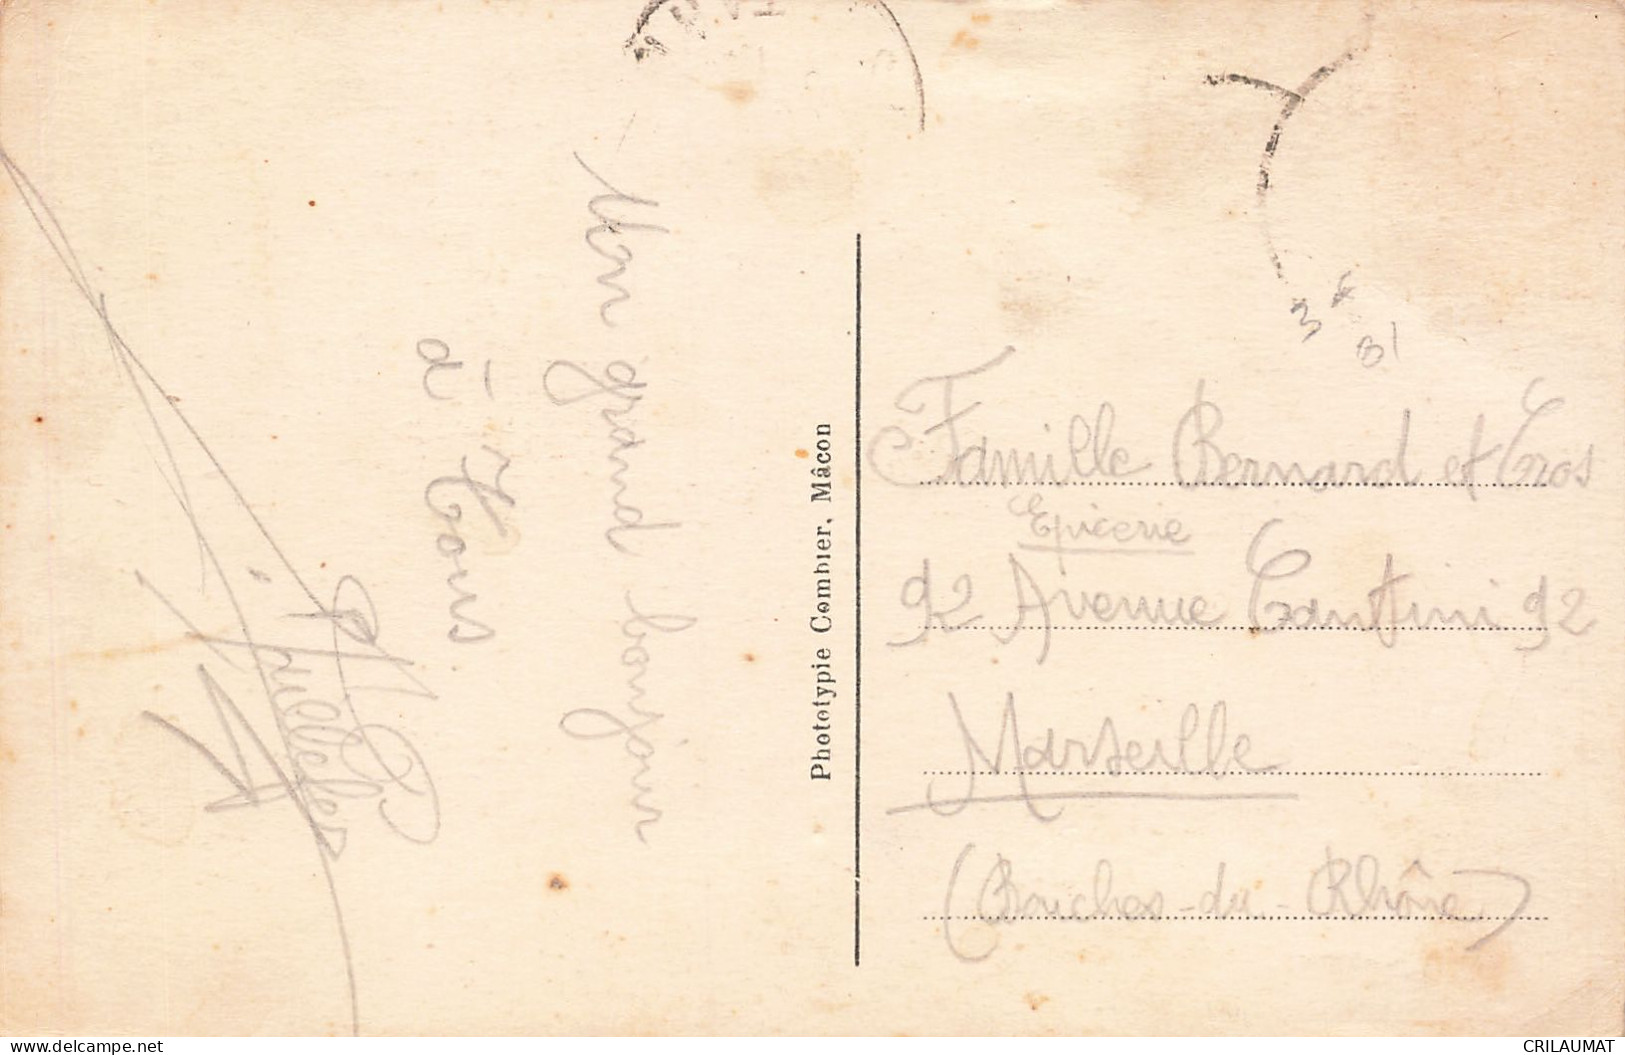 Un grand bonjour
à Tous.
Phototypie Combier, Mâcon
Famille Bernard et Cros
Epicerie
92 Avenue Cantini 92
Marseille
(Bouches-du-Rhône)
www.delcampe.net
CRILAUMAT